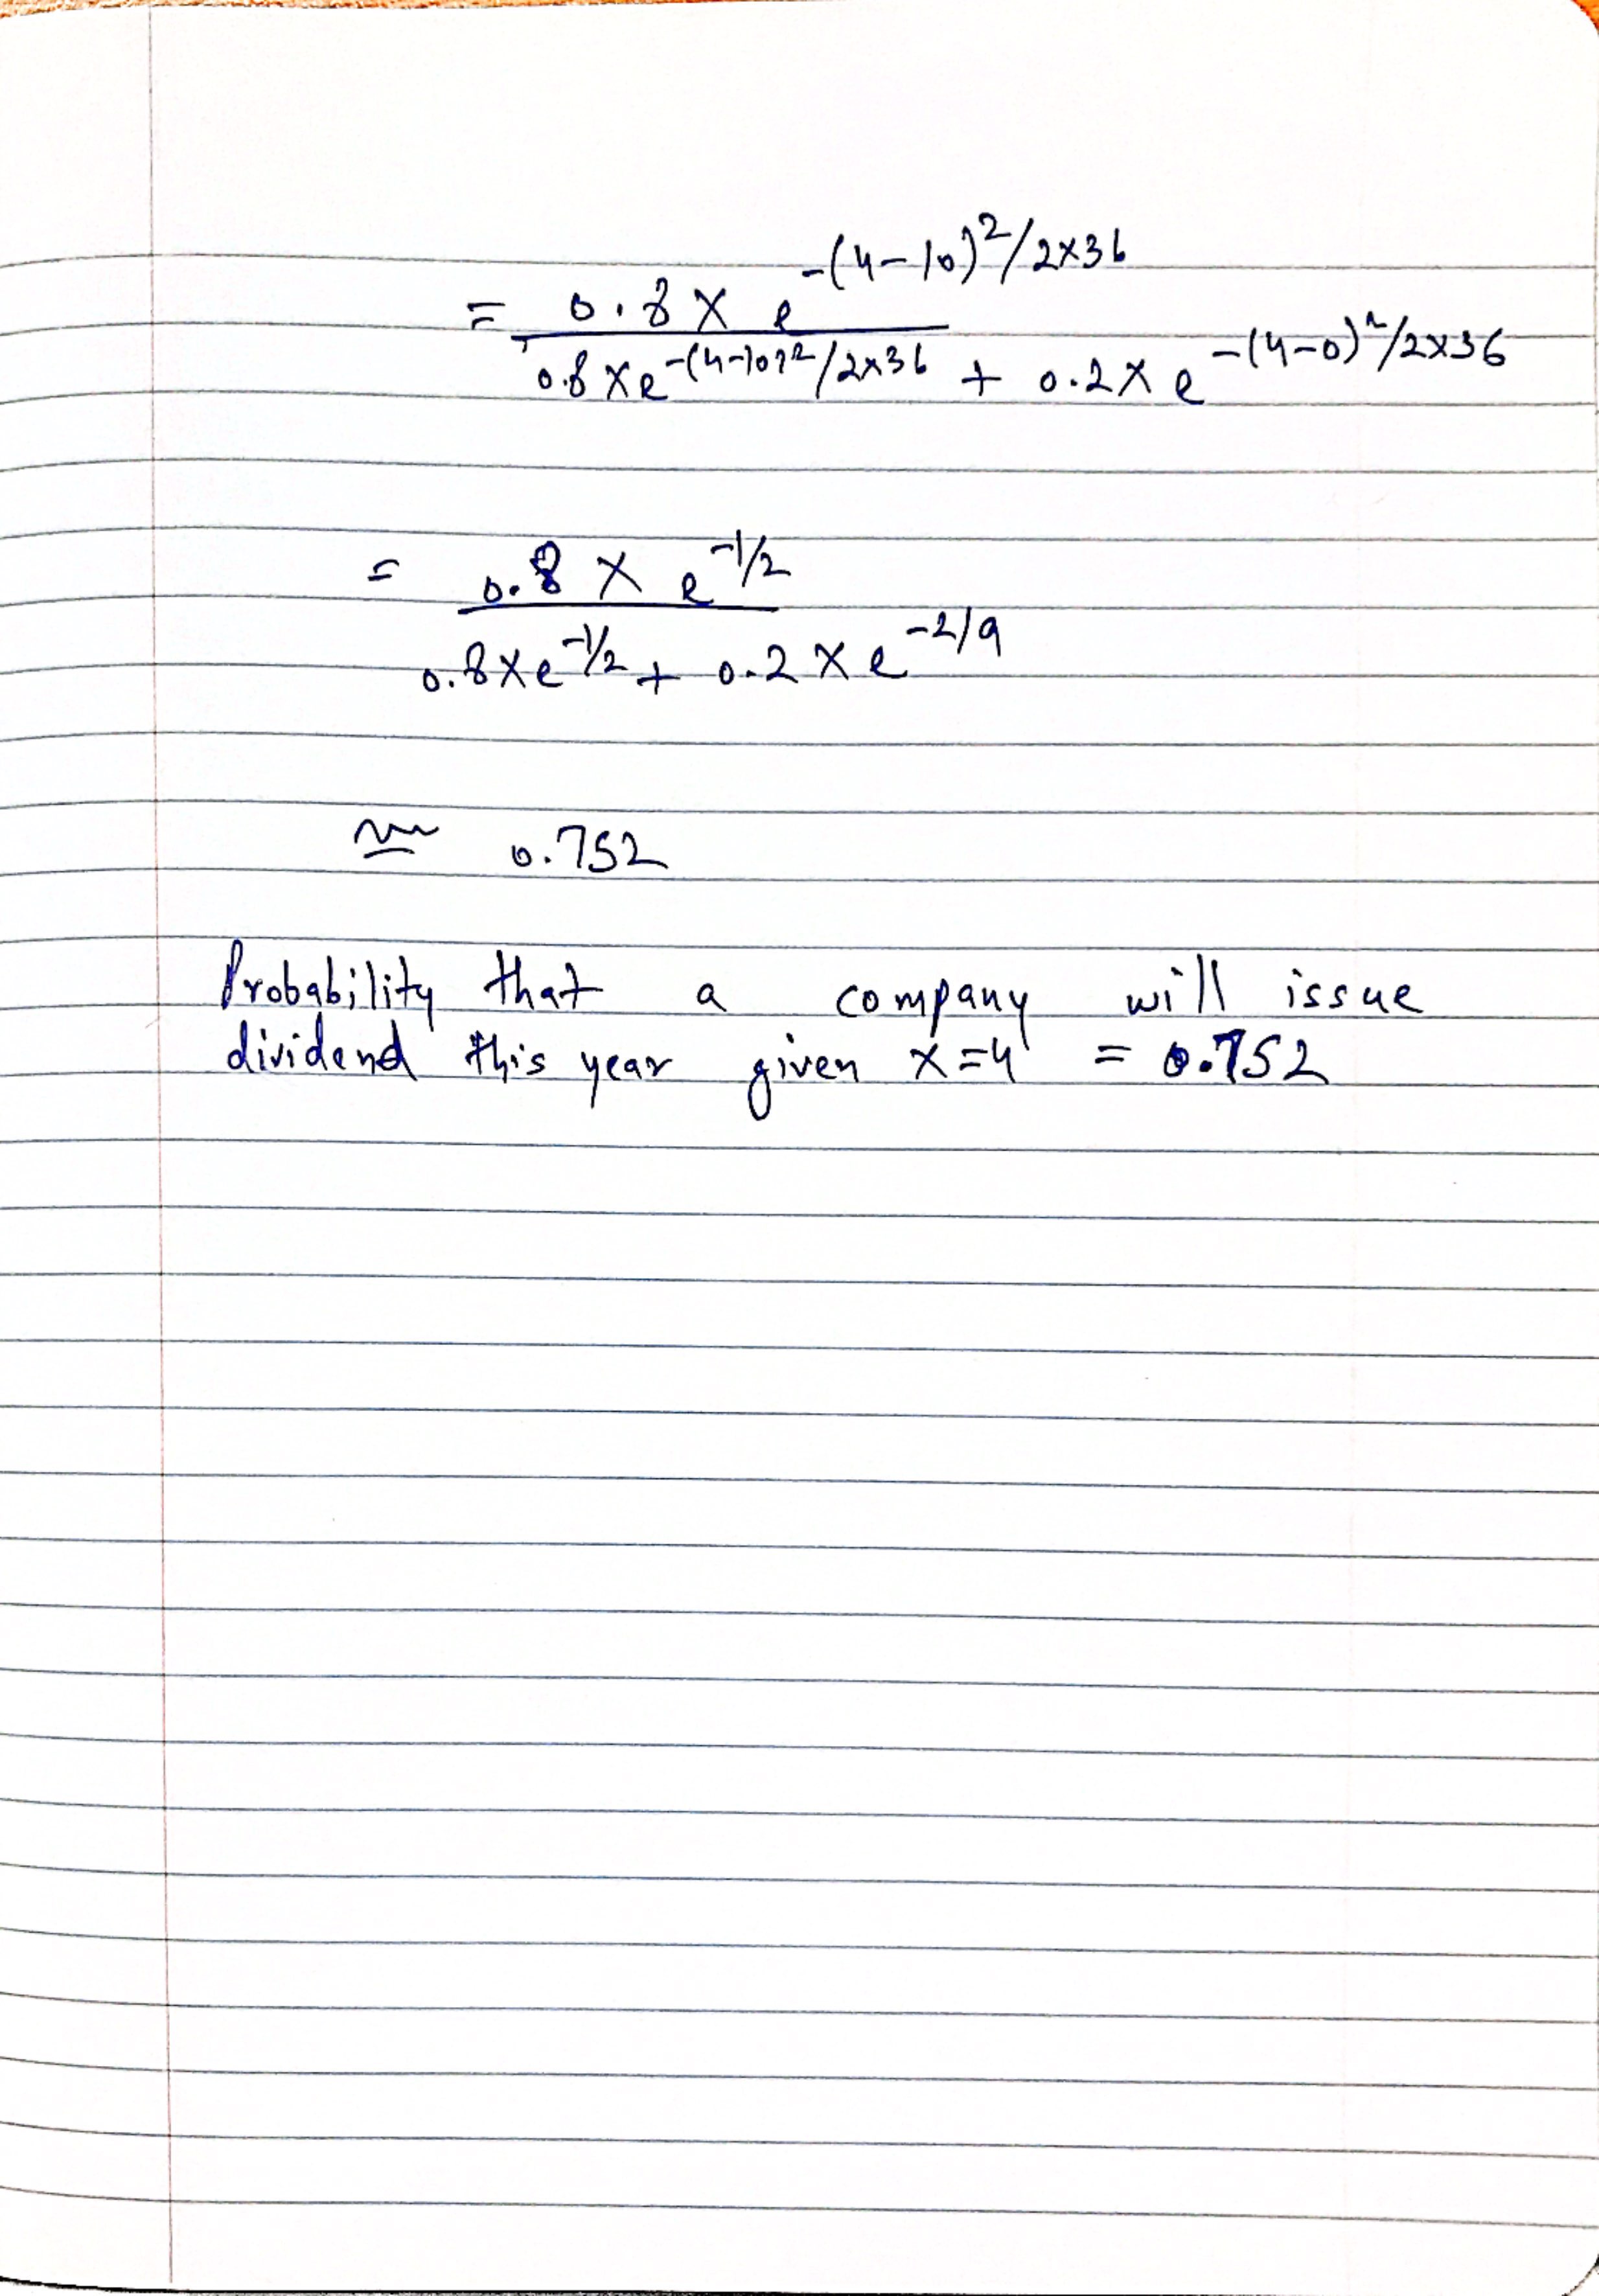 = 0.8 × e^{-(4-10)^2/2×36}
0.8×e^{-(4-10)^2/2×36} + 0.2× e^{-(4-0)^2/2×36}
= 0.8 × e^{-1/2}
0.8×e^{-1/2} + 0.2 × e^{-2/9}
≈ 0.752
Probability that a company will issue
dividend this year given x=4 = 0.752